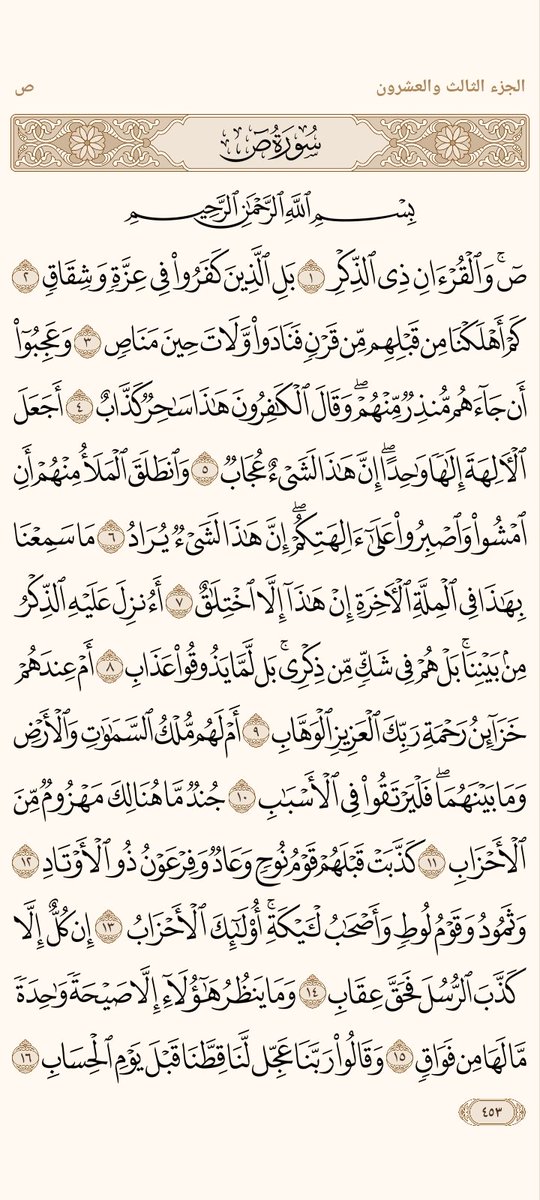 الجزء الثالث والعشرون ص
سُورَةُ صٓ
بِسۡمِ ٱللَّهِ ٱلرَّحۡمَٰنِ ٱلرَّحِيمِ
صٓۚ وَٱلۡقُرۡءَانِ ذِي ٱلذِّكۡرِ ١ بَلِ ٱلَّذِينَ كَفَرُواْ فِي عِزَّةٖ وَشِقَاقٖ ٢
كَمۡ أَهۡلَكۡنَا مِن قَبۡلِهِم مِّن قَرۡنٖ فَنَادَواْ وَّلَاتَ حِينَ مَنَاصٖ ٣ وَعَجِبُوٓاْ
أَن جَآءَهُم مُّنذِرٞ مِّنۡهُمۡۖ وَقَالَ ٱلۡكَٰفِرُونَ هَٰذَا سَٰحِرٞ كَذَّابٌ ٤ أَجَعَلَ
ٱلۡأٓلِهَةَ إِلَٰهٗا وَٰحِدًاۖ إِنَّ هَٰذَا لَشَيۡءٌ عُجَابٞ ٥ وَٱنطَلَقَ ٱلۡمَلَأُ مِنۡهُمۡ أَنِ
ٱمۡشُواْ وَٱصۡبِرُواْ عَلَىٰٓ ءَالِهَتِكُمۡۖ إِنَّ هَٰذَا لَشَيۡءٞ يُرَادُ ٦ مَا سَمِعۡنَا
بِهَٰذَا فِي ٱلۡمِلَّةِ ٱلۡأٓخِرَةِ إِنۡ هَٰذَآ إِلَّا ٱخۡتِلَٰقٌ ٧ أَءُنزِلَ عَلَيۡهِ ٱلذِّكۡرُ
مِنۢ بَيۡنِنَاۚ بَلۡ هُمۡ فِي شَكّٖ مِّن ذِكۡرِيۚ بَل لَّمَّا يَذُوقُواْ عَذَابِ ٨ أَمۡ عِندَهُمۡ
خَزَآئِنُ رَحۡمَةِ رَبِّكَ ٱلۡعَزِيزِ ٱلۡوَهَّابِ ٩ أَمۡ لَهُم مُّلۡكُ ٱلسَّمَٰوَٰتِ وَٱلۡأَرۡضِ
وَمَا بَيۡنَهُمَاۖ فَلۡيَرۡتَقُواْ فِي ٱلۡأَسۡبَٰبِ ١٠ جُندٞ مَّا هُنَالِكَ مَهۡزُومٞ مِّنَ
ٱلۡأَحۡزَابِ ١١ كَذَّبَتۡ قَبۡلَهُمۡ قَوۡمُ نُوحٖ وَعَادٞ وَفِرۡعَوۡنُ ذُو ٱلۡأَوۡتَادِ ١٢
وَثَمُودُ وَقَوۡمُ لُوطٖ وَأَصۡحَٰبُ لۡـَٔيۡكَةِۚ أُوْلَٰٓئِكَ ٱلۡأَحۡزَابُ ١٣ إِن كُلٌّ إِلَّا
كَذَّبَ ٱلرُّسُلَ فَحَقَّ عِقَابِ ١٤ وَمَا يَنظُرُ هَٰٓؤُلَآءِ إِلَّا صَيۡحَةٗ وَٰحِدَةٗ
مَّا لَهَا مِن فَوَاقٖ ١٥ وَقَالُواْ رَبَّنَا عَجِّل لَّنَا قِطَّنَا قَبۡلَ يَوۡمِ ٱلۡحِسَابِ ١٦
٤٥٣